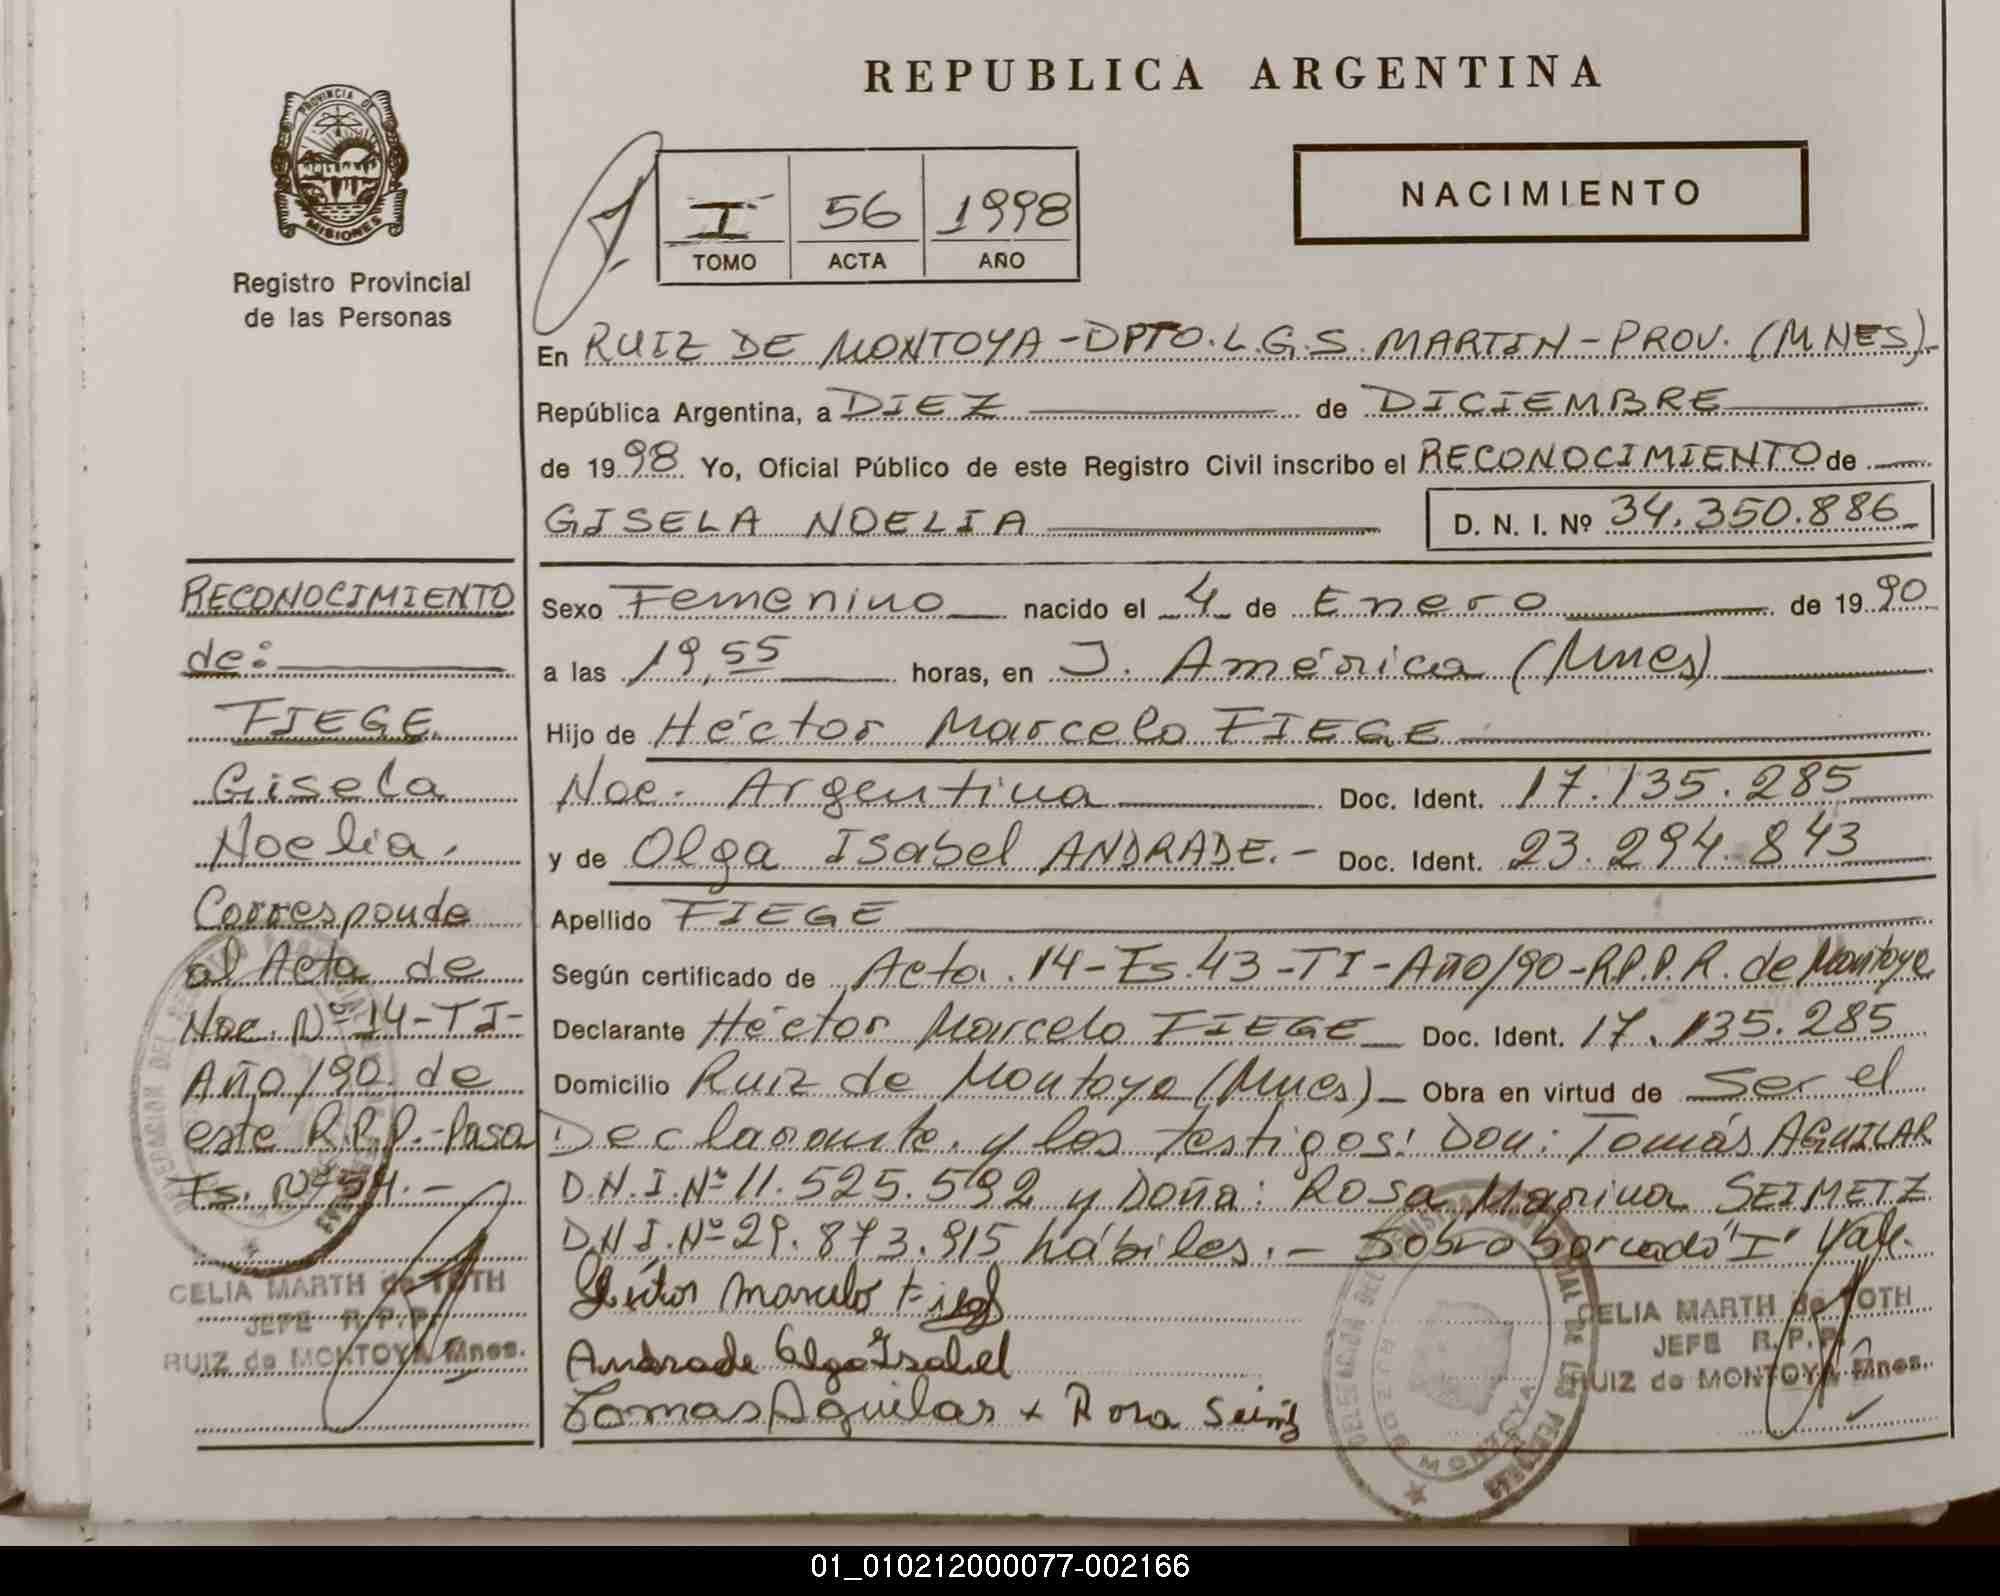 REPUBLICA ARGENTINA
PROVINCIA DE
MISIONES
Registro Provincial
de las Personas
I 56 1998
TOMO ACTA AÑO
NACIMIENTO
En RUIZ DE MONTOYA-DPTO.L.G.S. MARTIN-PROV. (MNES)-
República Argentina, a DIEZ de DICIEMBRE
de 1998 Yo, Oficial Público de este Registro Civil inscribo el RECONOCIMIENTO de
GISELA NOELIA D. N. I. Nº 34.350.886
Sexo Femenino nacido el 4 de Enero de 1990
a las 19,55 horas, en J. América (Mnes)
Hijo de Héctor Marcelo FIEGE
Nac. Argentina Doc. Ident. 17.135.285
y de Olga Isabel ANDRADE.- Doc. Ident. 23.294.843
Apellido FIEGE
Según certificado de Acta.14-Fs.43-TI-Año/90-R.P.P.R. de Montoya
Declarante Héctor Marcelo FIEGE Doc. Ident. 17.135.285
Domicilio Ruiz de Montoya (Mnes)- Obra en virtud de Ser el
Declarante, y los testigos: Don: Tomás AGUILAR
D.N.I.Nº 11.525.592 y Doña: Rosa Marina SEIMETZ
D.N.I.Nº 29.873.915 hábiles.- Sobre borrado "I" Vale.
Héctor Marcelo Fiege
Andrade Olga Isabel
Tomas Aguilar + Rosa Seimtz
CELIA MARTH de TOTH
JEFE R.P.P.
RUIZ de MONTOYA Mnes.
RECONOCIMIENTO
de:
FIEGE
Gisela
Noelia.
Corresponde
al Acta de
Nac. Nº 14-TI-
Año/90 de
este R.P.P.-Pasa
Fs. Nº 54.-
CELIA MARTH de TOTH
JEFE R.P.P.
RUIZ de MONTOYA Mnes.
01_010212000077-002166